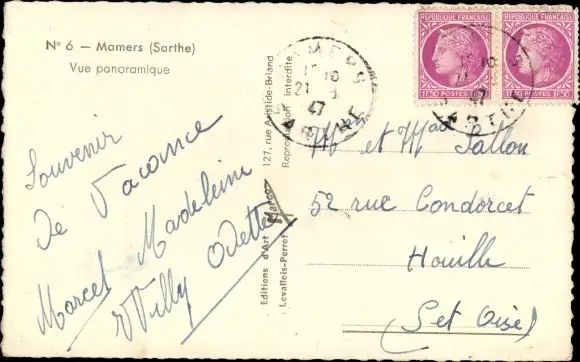 N° 6 — Mamers (Sarthe)
Vue panoramique
Souvenir
de Vacance
Marcel Madeleine
Willy Odette
Editions d'Art Marco
127, rue Aristide-Briand
Levallois-Perret
Reproduction interdite
RÉPUBLIQUE FRANÇAISE
1f50 POSTES
RÉPUBLIQUE FRANÇAISE
1f50 POSTES
MAMERS
21
47
SARTHE
Mr et Mme Sallon
52 rue Condorcet
Houille
Set Oise